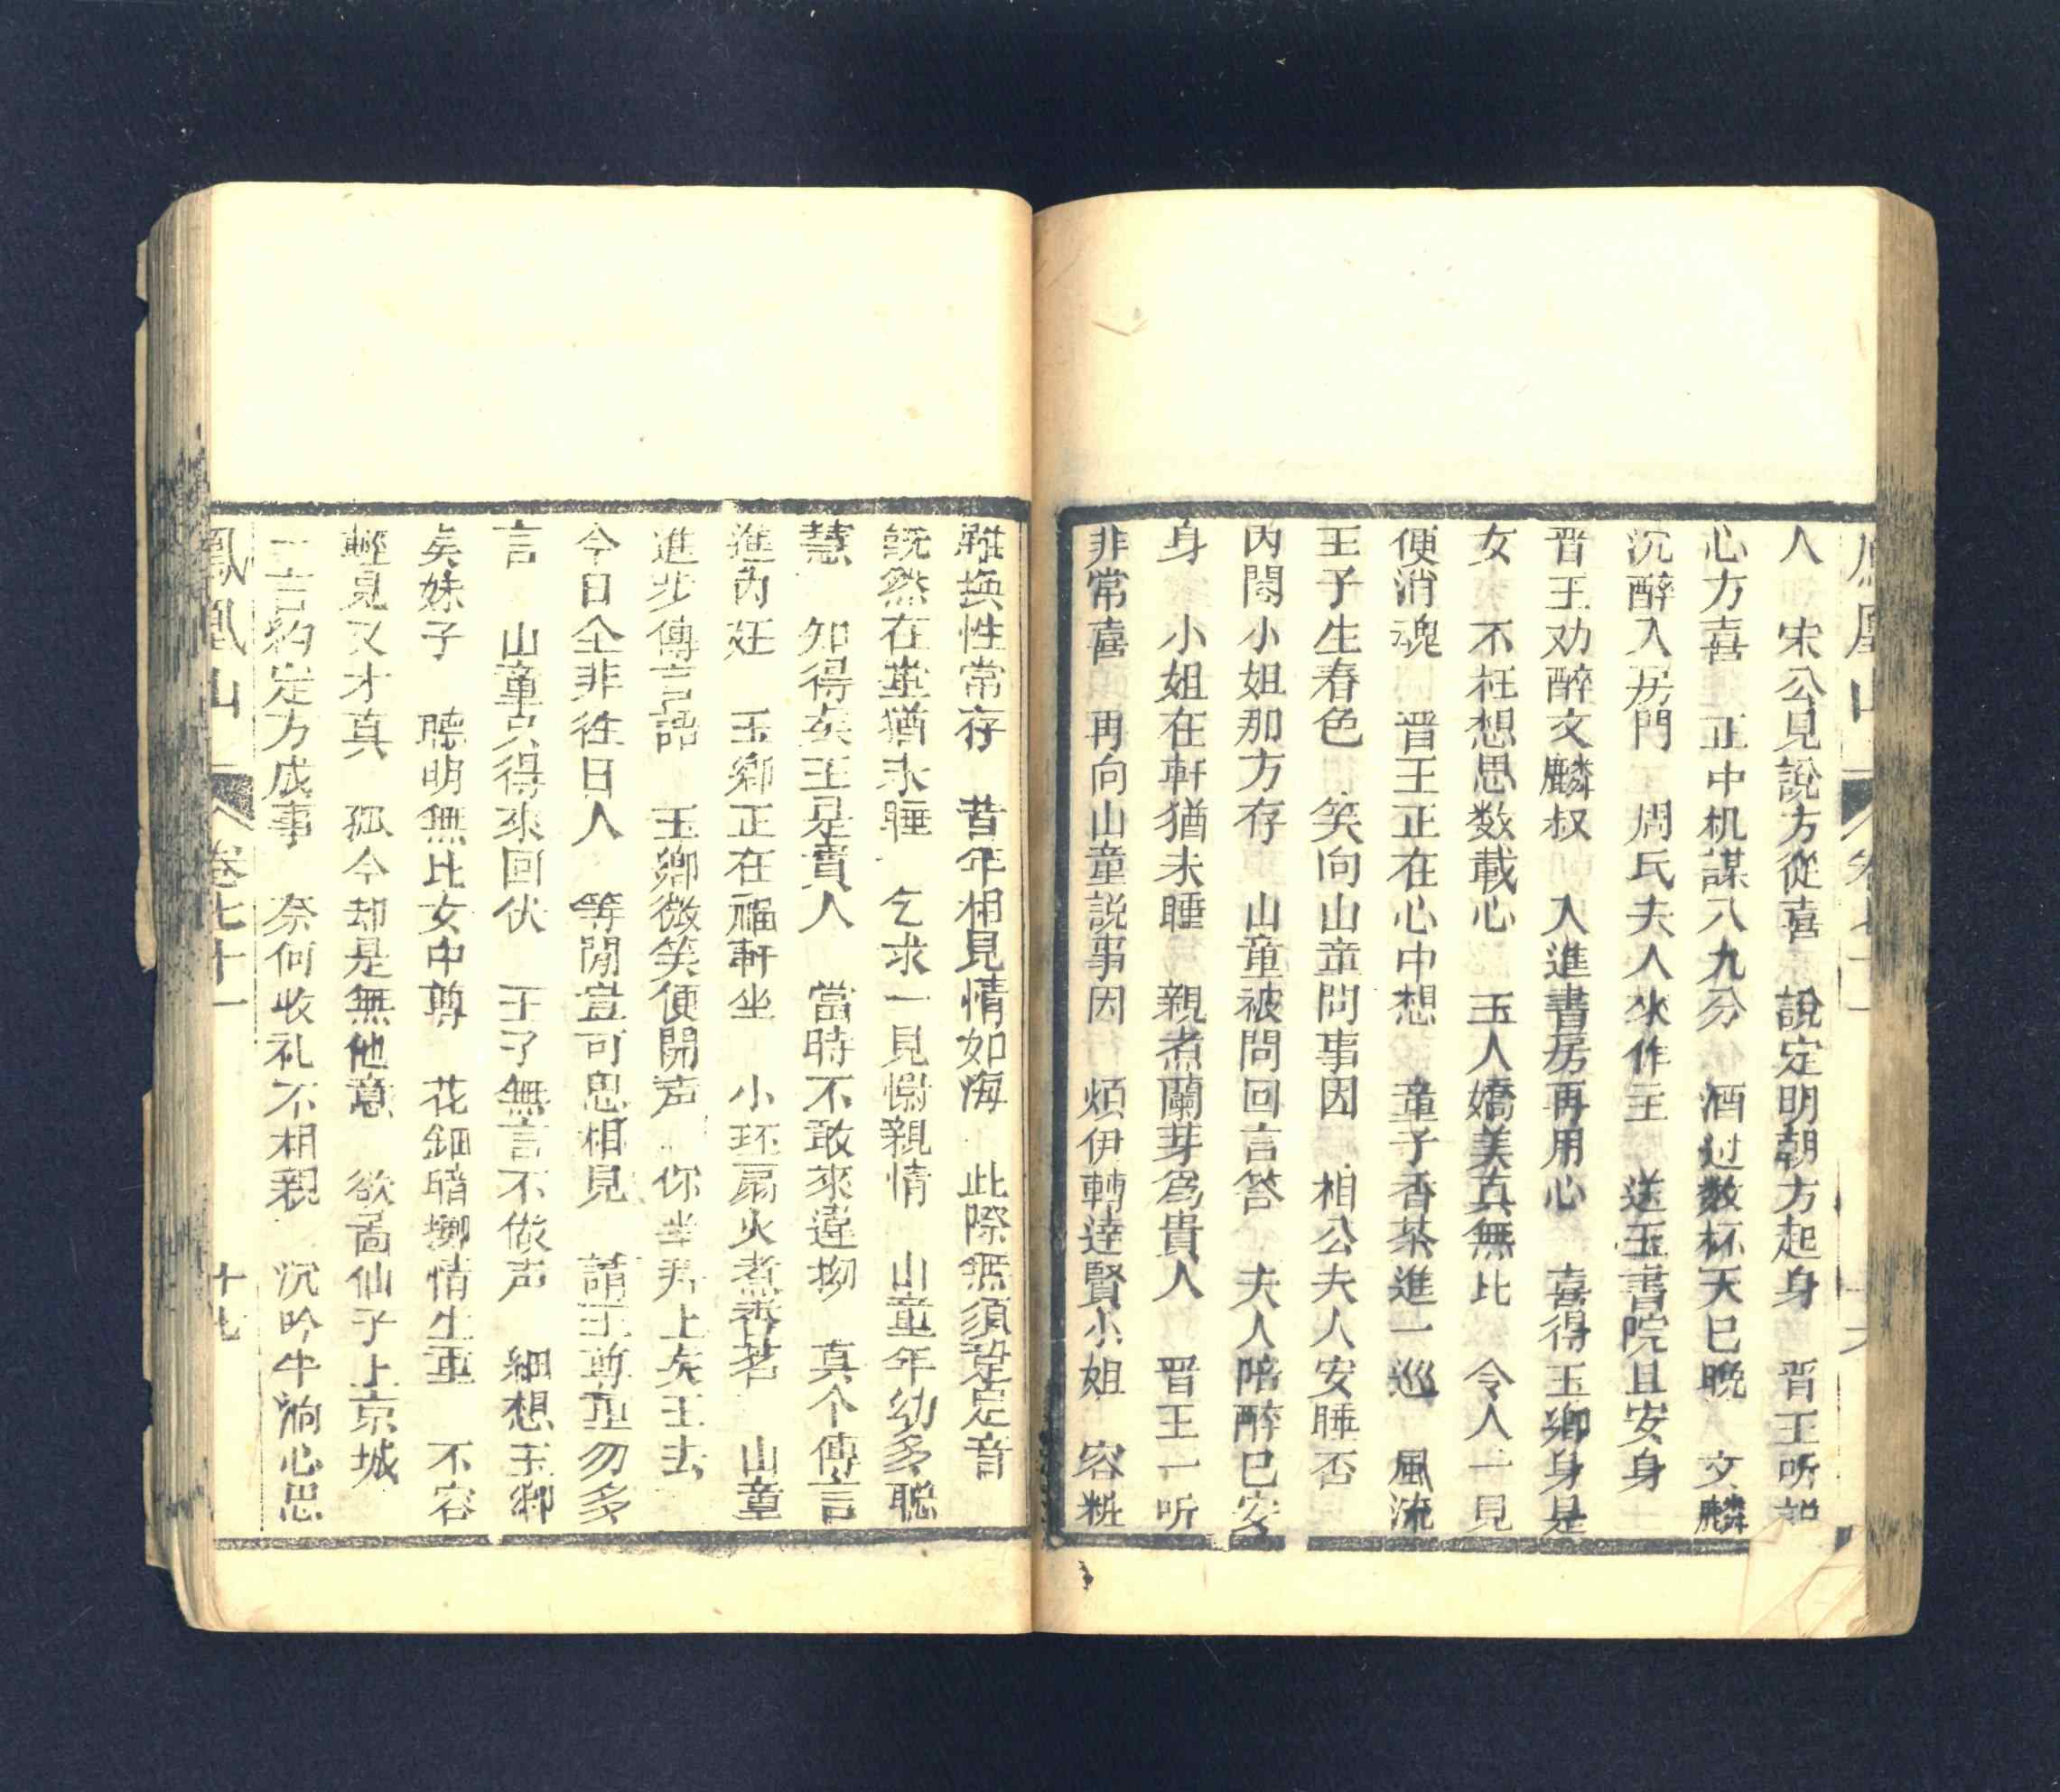 人　宋公見說方從喜　說定明朝方起身　晋王听記
心方喜　正中机謀八九分　酒过数杯天已晚　文麟
沉醉入房門　周氏夫人來作主　送玉書院且安身
晋王劝醉文麟叔　入進書房再用心　喜得玉卿身是
女　不枉想思数載心　玉人嬌美真無比　令人一見
便消魂　晋王正在心中想　童子香茶進一巡　風流
王子生春色　笑向山童問事因　相公夫人安睡否
内閣小姐那方存　山童被問回言答　夫人陪醉已安
身　小姐在軒猶未睡　親煮蘭芽為貴人　晋王一听
非常喜　再向山童説事因　煩伊轉達賢小姐　容粧
雖换性常存　昔年相見情如海　此際無須定音
既然在堂猶未睡　乞求一見慰親情　山童年幼多聪
慧　知得矣王是貴人　當時不敢來違拗　真个傳言
進内廷　玉卿正在福軒坐　小环扇火煮香茗　山童
進步傳言語　玉卿微笑便開声　你山上矣王去
今日仝非往日人　等閒豈可思相見　請王尊重勿多
言　山童只得來回伏　王子無言不做声　細想玉卿
矣妹子　聰明無比女中尊　花鈿暗擲情生重　不容
輕見又才真　孤今却是無他意　欲啚仙子上京城
一言約定方成事　奈何收礼不相親　沉吟半晌心思
鳳凰山　卷七十一　十九